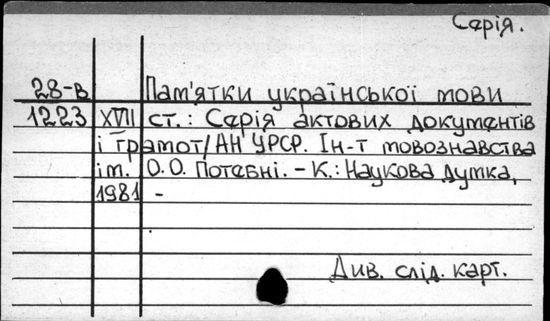 Серія.
28-в Пам'ятки української мови
1223 XVII ст.: Серія актових документів
і грамот/АН УРСР. Ін-т мовознавства
ім. О.О. Потебні. – К.: Наукова думка,
1981 –
Див. слід. карт.